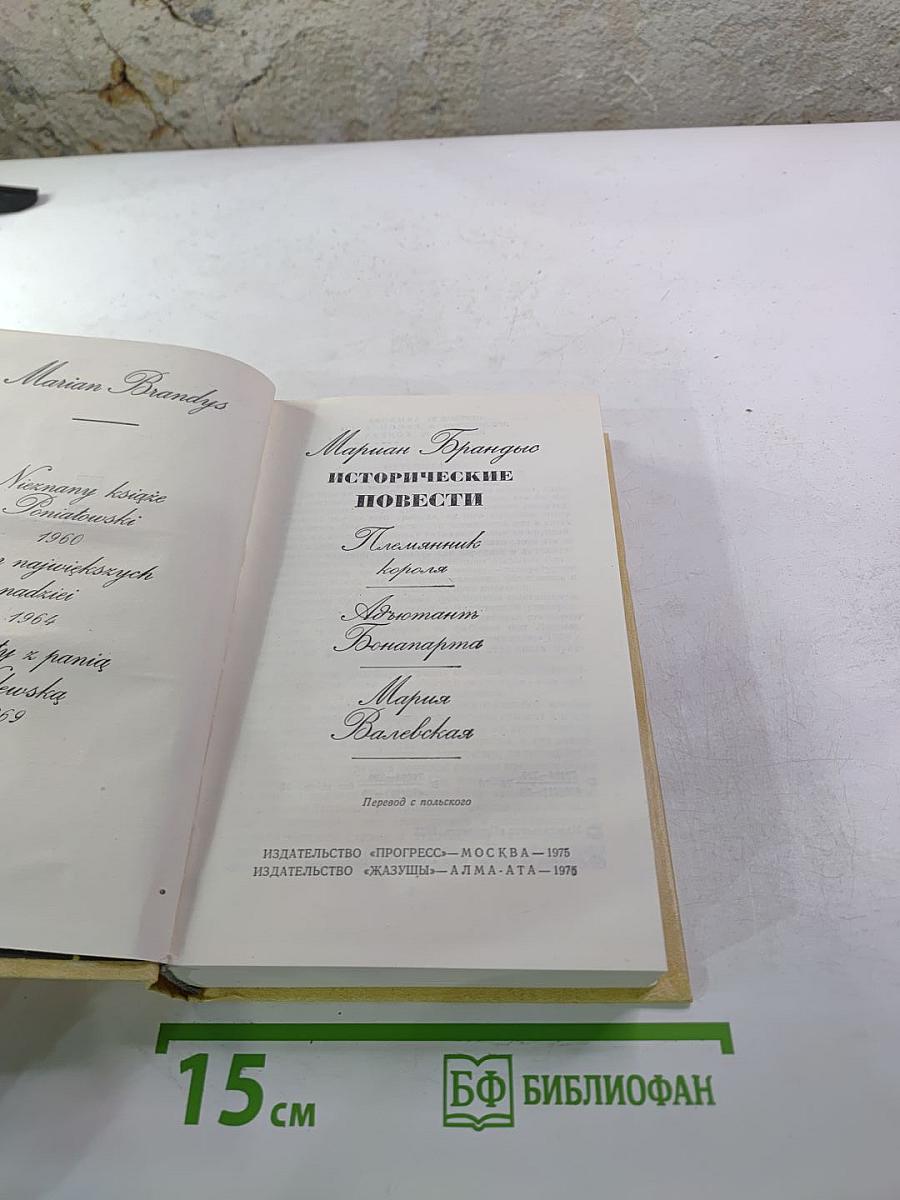 Marian Brandys
Nieznany książe
Poniatowski
1960
największych
nadziei
1964
z panią
1969
Мариан Брандыс
ИСТОРИЧЕСКИЕ
ПОВЕСТИ
Племянник
короля
Адъютант
Бонапарта
Мария
Валевская
Перевод с польского
ИЗДАТЕЛЬСТВО «ПРОГРЕСС»—МОСКВА—1975
ИЗДАТЕЛЬСТВО «ЖАЗУЩЫ»—АЛМА-АТА—1976
15 см
БФ БИБЛИОФАН